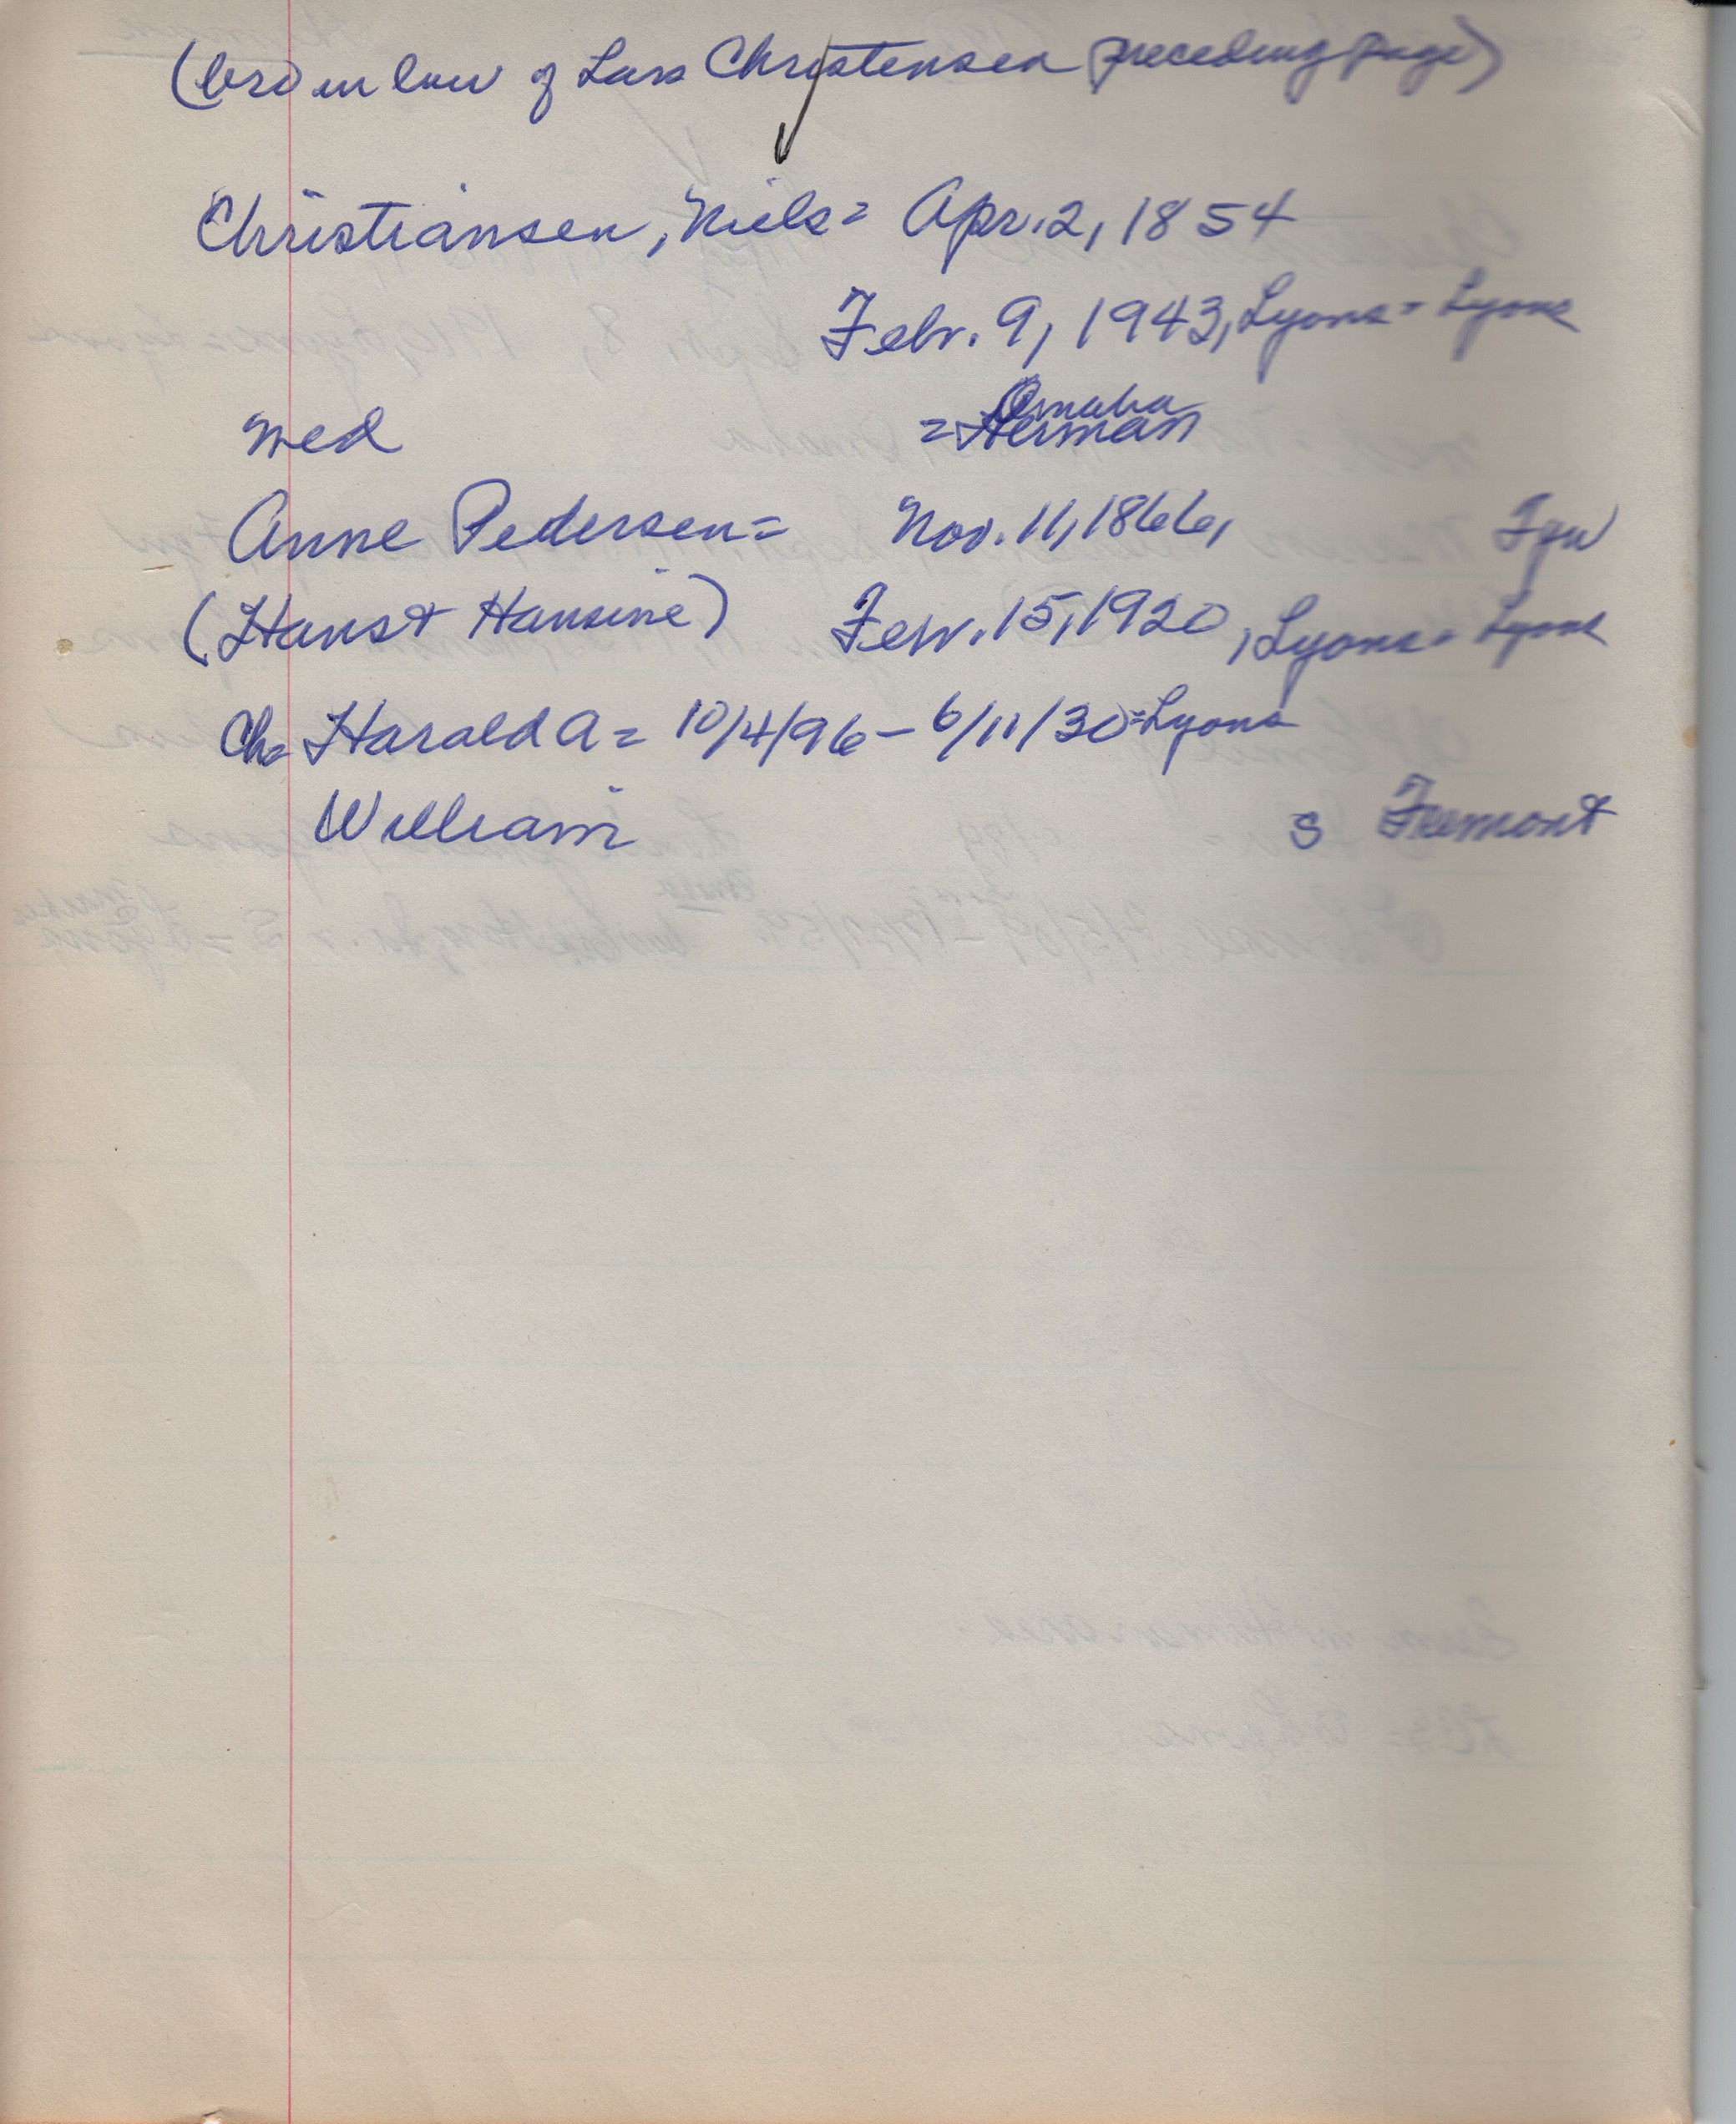 (bro in law of Lars Christensen preceding page)
Christiansen, Niels = Apr. 2, 1854
Febr. 9, 1943, Lyons = Lyons
med = Omaha
Anne Pedersen = Nov. 11, 1866, Fyn
(Hans + Hansine) Febr. 15, 1920, Lyons = Lyons
Ch = Harald A = 10/4/96 - 6/11/30 = Lyons
William S Fremont